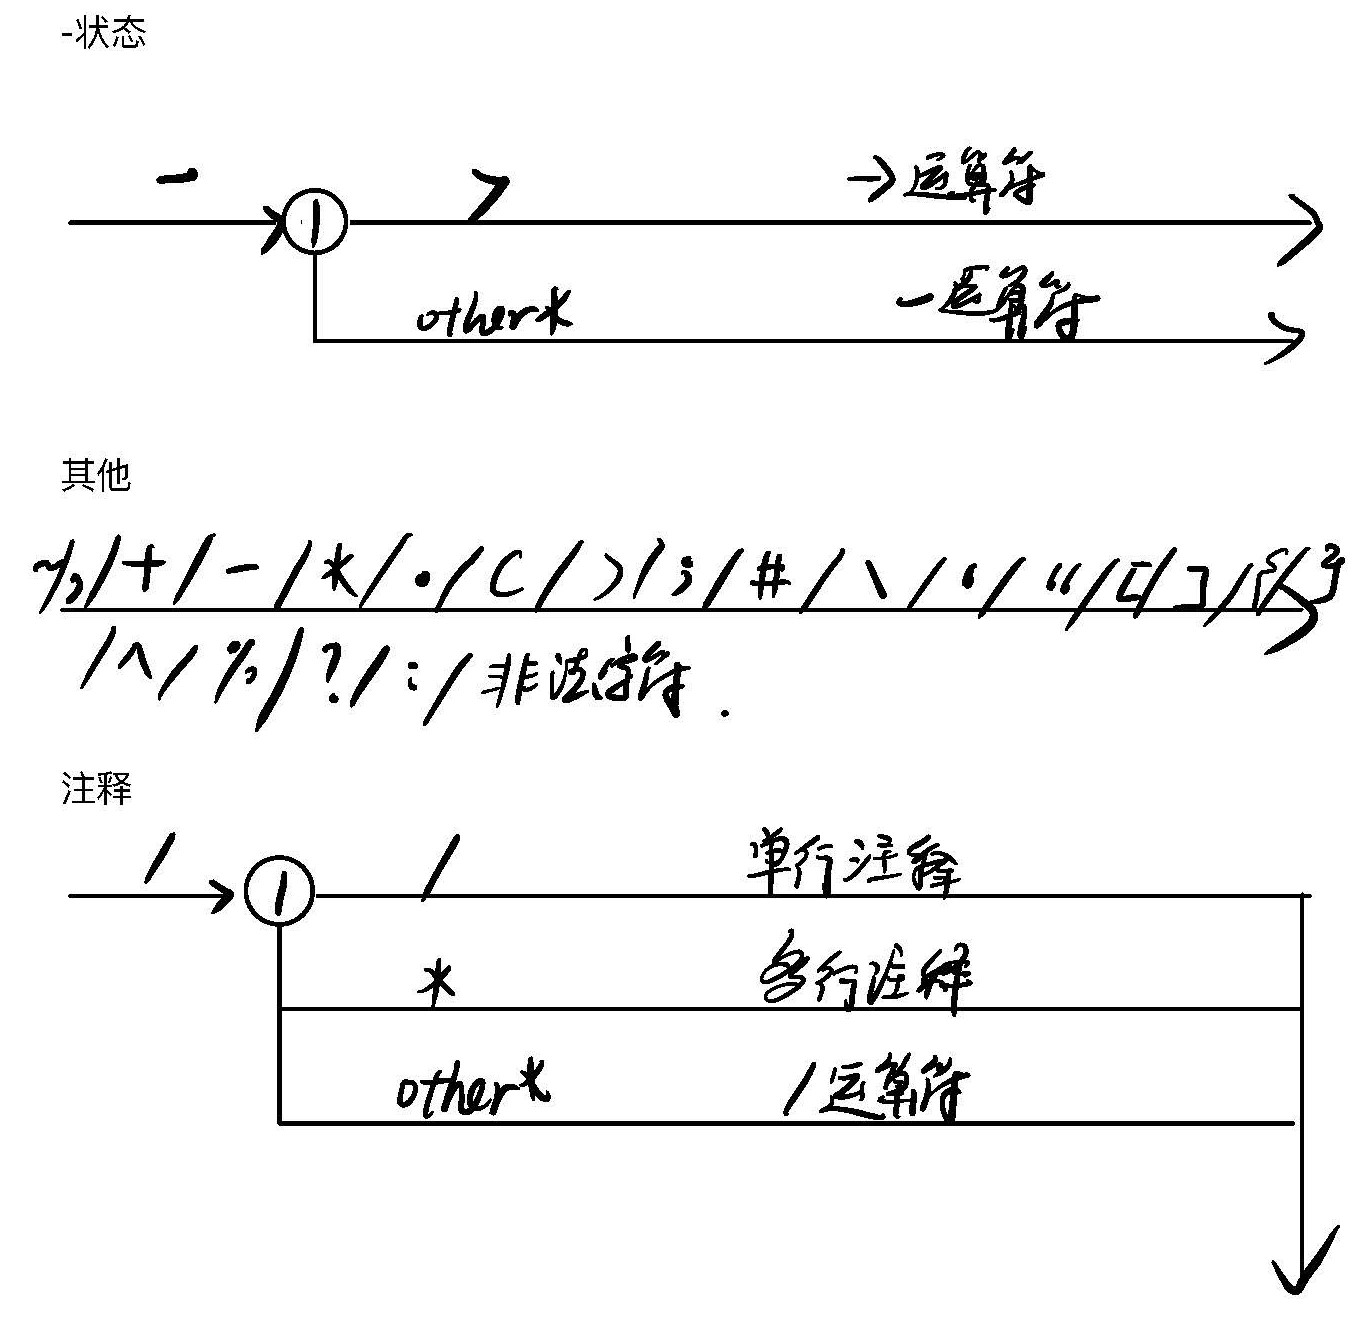 -状态
- > →运算符
1
other* -运算符
其他
~/,/+/-/*/./(/)/;/#/\/‘/“/[/]/{/}
/^/%/?/:/非法字符.
注释
/ / 单行注释
1
* 多行注释
other* /运算符